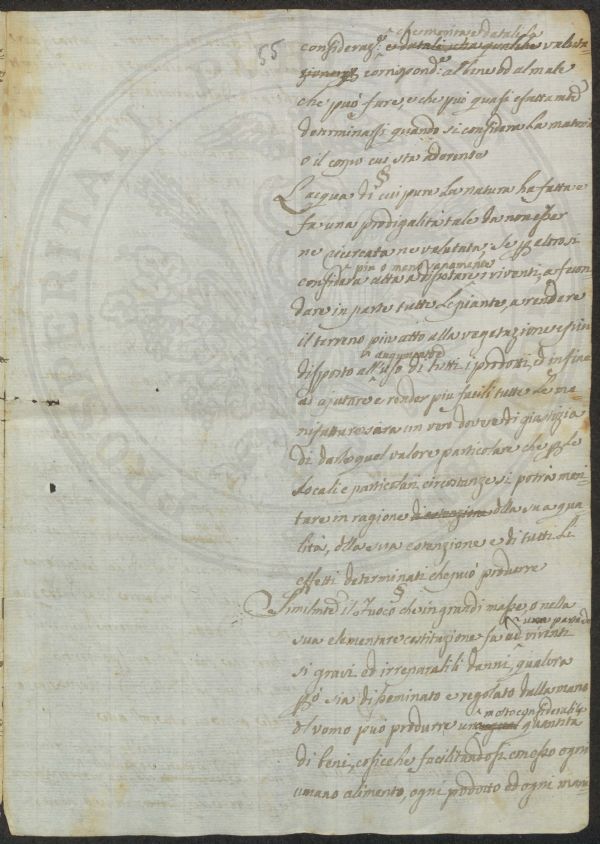 55
che merita e da tali le
considerazᵉ e da tali ch'a qualche valuta
zione corrispondᵉ al bene od al male
che può fare, e che può quasi esattamᵗᵉ
determinarsi quando si considera la materia
o il corpo cui sta aderente
§
L'acqua di cui pure la natura ha fatta e
fa una prodigalità tale da non esser
ne ricercata ne valutata; se altro si
più o meno vanamente
considera atta a dissetare i viventi, a fecon
dare in parte tutte le piante, a rendere
il terreno più atto alla vegetazione e
disposto all'uso di tutti i prodotti, ed infine
ad ajutare e render più facili tutte le ma
nifatture sarà un vero dovere di giustizia
di darle quel valore particolare che le
locali e particolari circostanze si potrà meri
tare in ragione di estenzione della sua qua
lità, della sua estenzione e di tutti li
effetti determinati che può produrre
§
Similmte il fuoco che in grandi masse, o nella
una parte de
sua elementare costituzione fa ad viventi
si gravi, ed irreparabili danni, qualora
sia disseminato e regolato dalla mano
dl' uomo può produrre una
molto considerabile
quantità
di beni, cosicche facilitandosi con esso ogni
umano alimento, ogni prodotto ed ogni manu
GROSSI